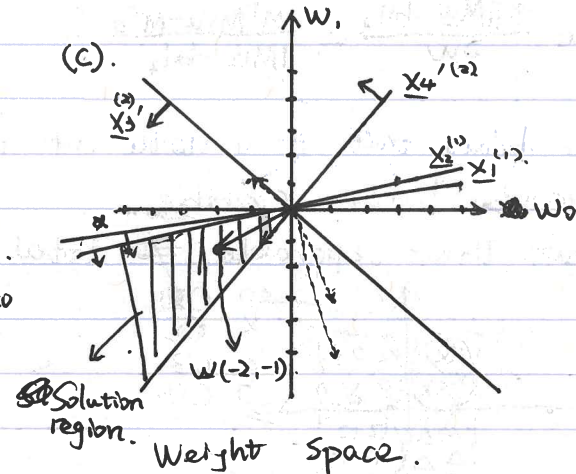 W₁
(C).
X4'⁽²⁾
X3'⁽²⁾
X2⁽¹⁾
X1⁽¹⁾.
W0
W(-2,-1)
Solution
region.
Weight Space.